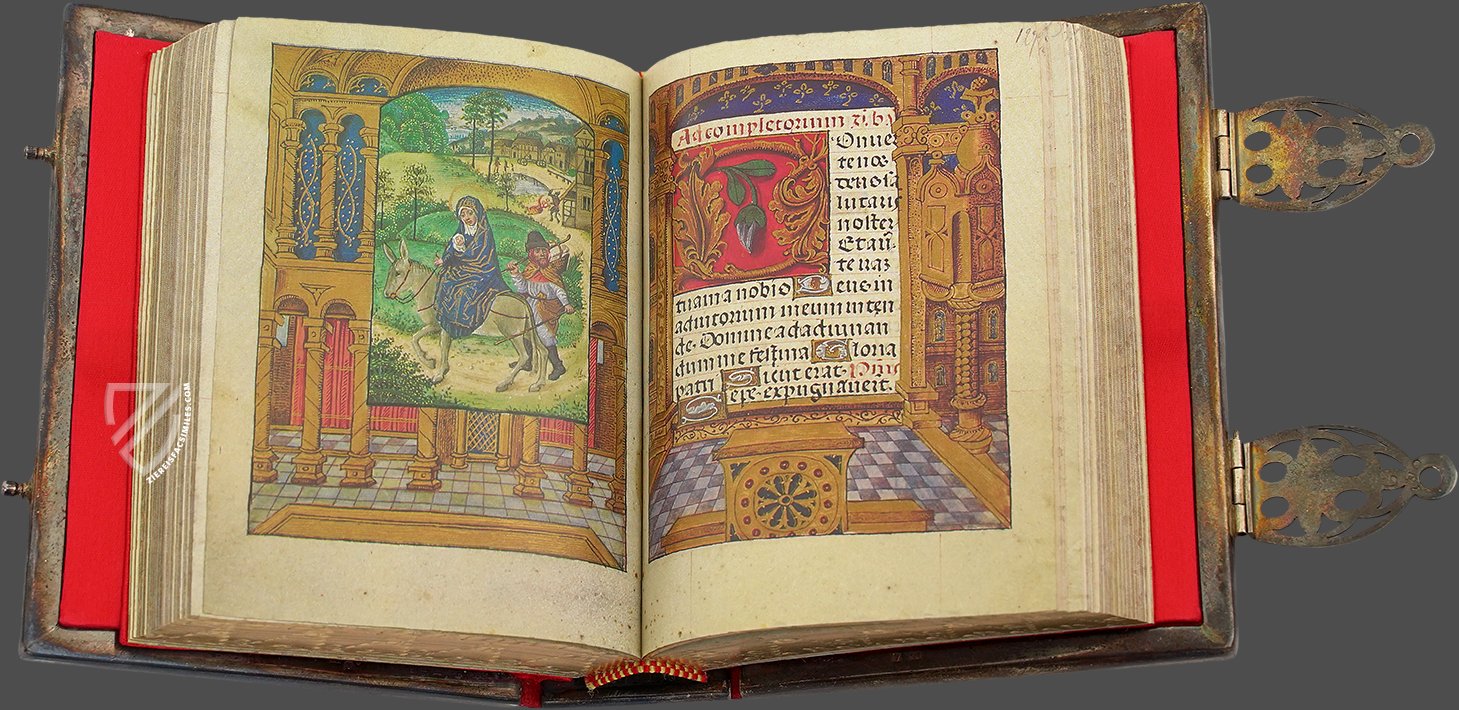 Ad completorium
Onuer
te nos
deus sa
lutaris
noster
Et au
te iraz
tuam a nobis Deus in
adiutorium meum inten
de. Domine ad adiuuan
dum me festina Glona
patri Sicut erat.
epe expugnauert.
ZIEREISFACSIMILES.COM